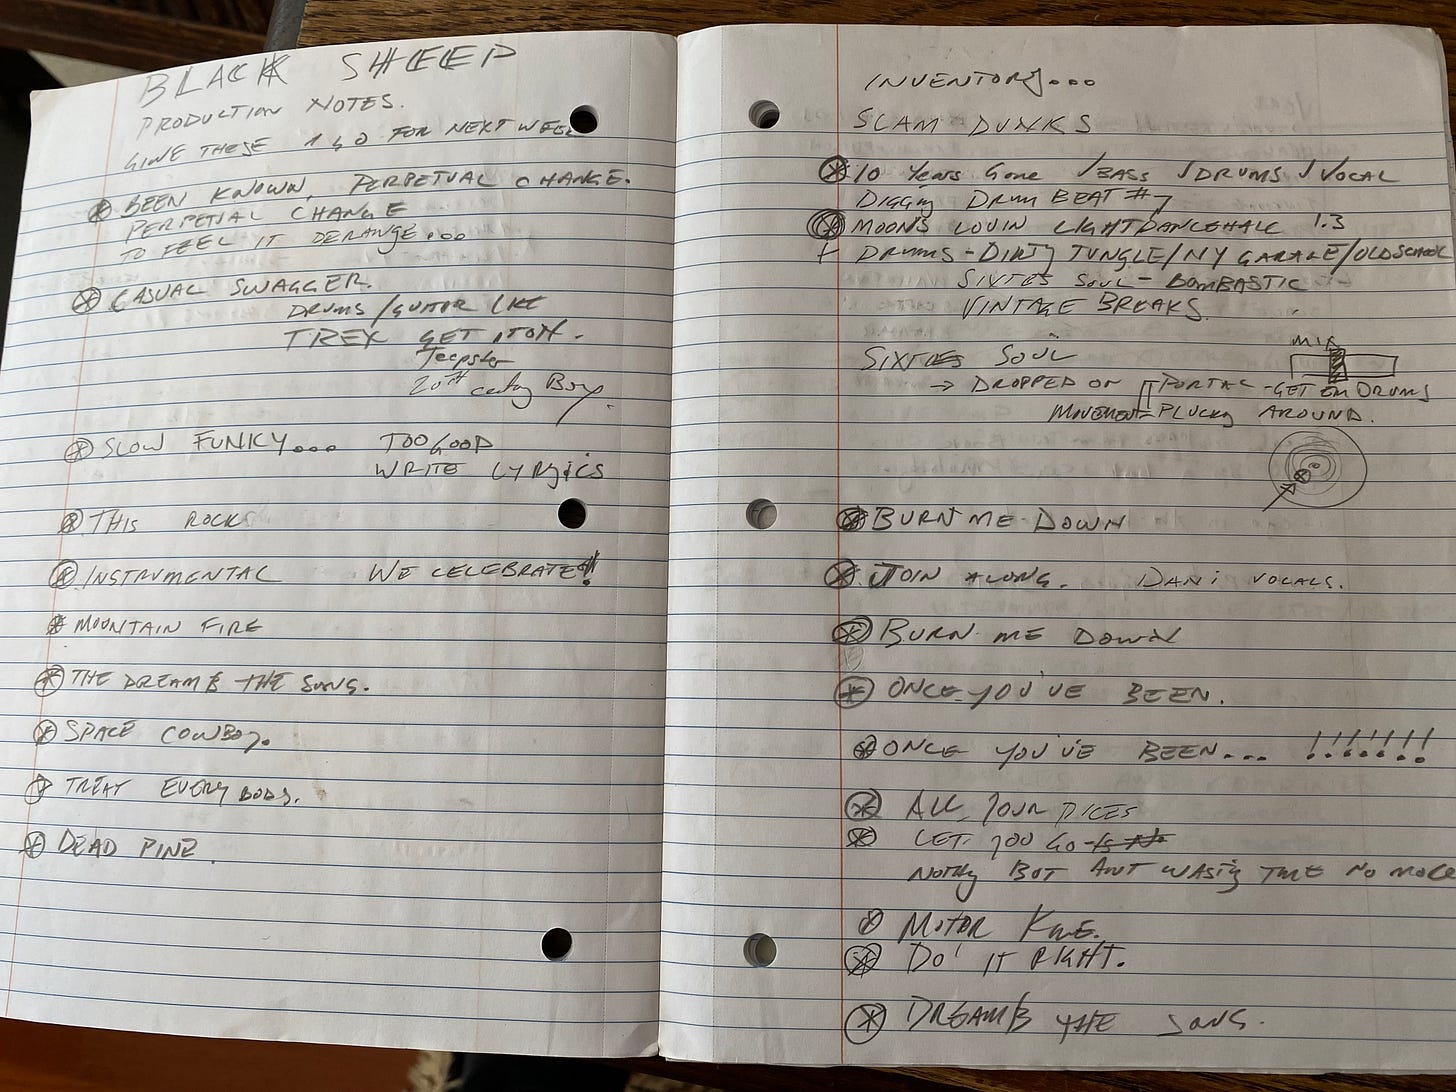 BLACK SHEEP
PRODUCTION NOTES.
GIVE THESE A GO FOR NEXT WEEK
BEEN KNOWN, PERPETUAL CHANGE.
PERPETUAL CHANGE
TO FEEL IT DERANGE...
CASUAL SWAGGER.
DRUMS/GUITAR LIKE
TREX GET IT ON.
Jeepster
20th century Boy.
SLOW FUNKY... TOO GOOD
WRITE LYRICS
THIS ROCKS
INSTRUMENTAL WE CELEBRATE!
MOUNTAIN FIRE
THE DREAM & THE SONG.
SPACE COWBOY.
TREAT EVERYBODY.
DEAD PINE.
INVENTORY...
SLAM DUNKS
10 Years Gone /BASS /DRUMS /VOCAL
DIGGIN DRUM BEAT #7
MOONS LOVIN LIGHT DANCEHALL 1.3
DRUMS - DIRTY JUNGLE/NY GARAGE/OLDSCHOOL
SIXTIES SOUL - BOMBASTIC
VINTAGE BREAKS.
SIXTIES SOUL
MIX
→ DROPPED ON PORTAL - GET EM DRUMS
MOVEMENT PLUCKY AROUND.
BURN ME DOWN
JOIN ALONG. DANI VOCALS.
BURN ME DOWN
ONCE YOU'VE BEEN.
ONCE YOU'VE BEEN... !!!!!!!
ALL YOUR
LET YOU GO
BUT AINT TIME NO MORE
MOTOR
DO IT RIGHT.
DREAM & THE SONG.